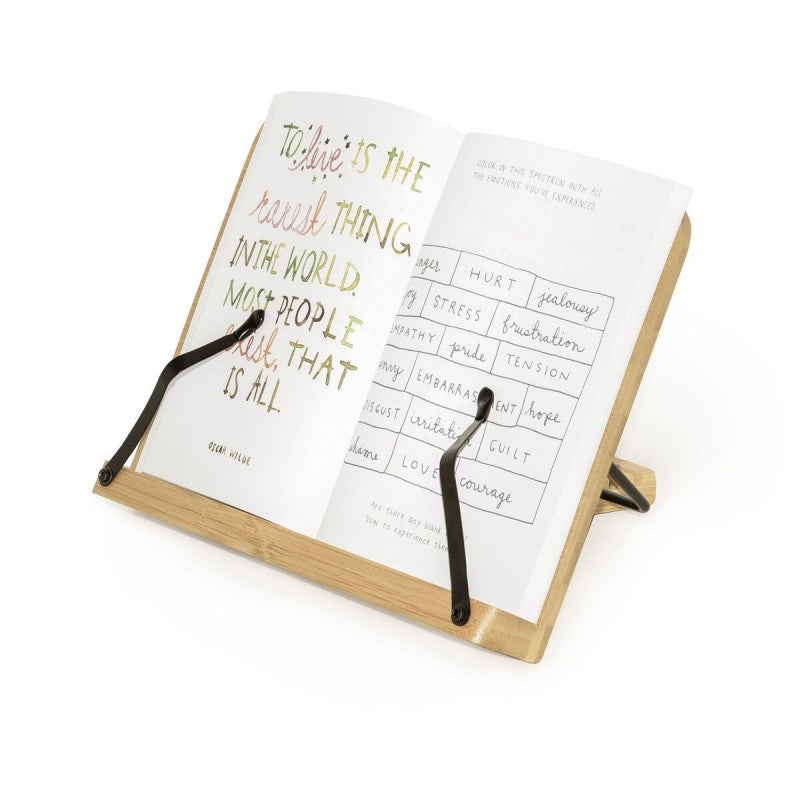 TO live IS THE
rarest THING
IN THE WORLD.
MOST PEOPLE
exist, THAT
IS ALL.
OSCAR WILDE
COLOR IN THIS SPECTRUM WITH ALL
THE EMOTIONS YOU'VE EXPERIENCED
HURT jealousy
STRESS frustration
pride TENSION
hope
irritation GUILT
LOVE courage
Are there any blank
Vow to experience